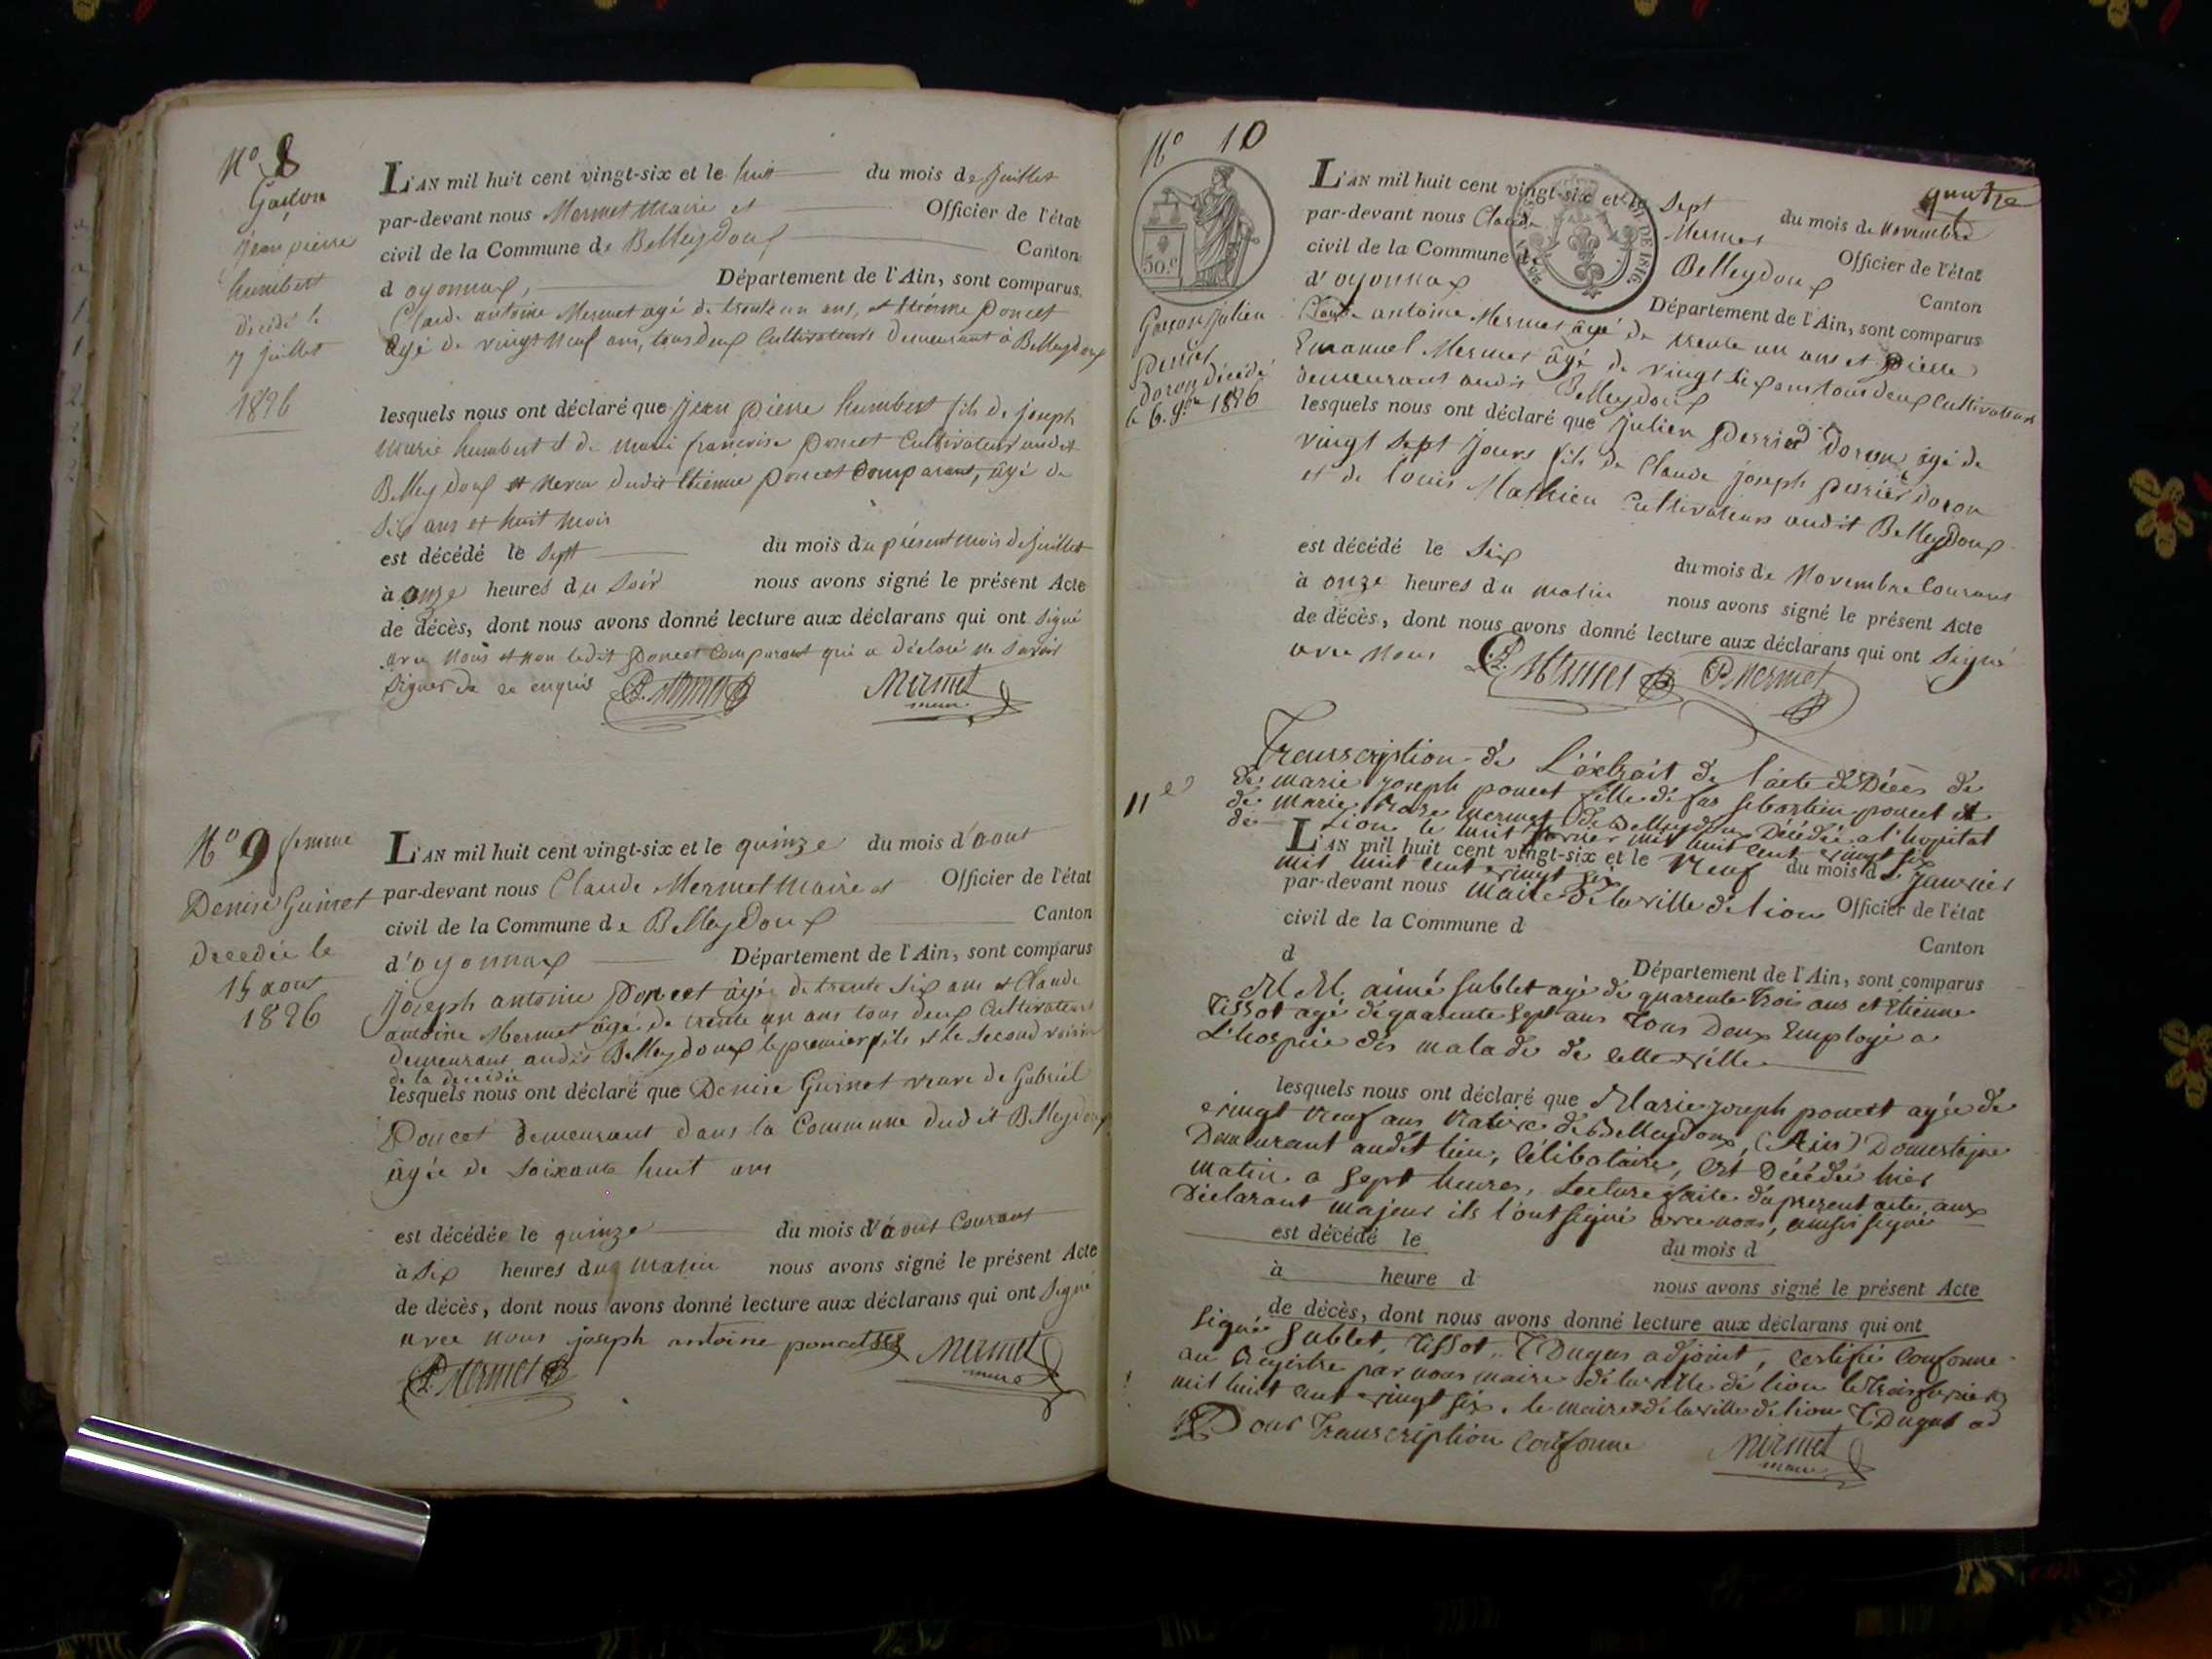 N° 8
Garçon
jean pierre
humbert
décédé le
7 juillet
1826
L'AN mil huit cent vingt-six et le huit du mois de juillet
par-devant nous Mermet Maire et Officier de l'état
civil de la Commune de Belleydoux Canton
d oyonnax, Département de l'Ain, sont comparus
Claude antoine Mermet agé de trente un ans, et Etienne poncet
agé de vingt neuf ans, tous deux Cultivateurs demeurant à Belleydoux
lesquels nous ont déclaré que jean pierre humbert fils de joseph
marie humbert et de marie françoise poncet Cultivateurs audit
Belleydoux et neveu dudit Etienne poncet Comparant, âgé de
six ans et huit mois
est décédé le sept du mois du présent mois de juillet
à onze heures du soir nous avons signé le présent Acte
de décès, dont nous avons donné lecture aux déclarans qui ont signé
avec nous et non ledit poncet Comparant qui a déclaré ne savoir
signer de ce enquis C.A. Mermet Mermet
maire
N° 9 femme
Denise Guinet
décédée le
15 aout
1826
L'AN mil huit cent vingt-six et le quinze du mois d'aout
par-devant nous Claude Mermet Maire et Officier de l'état
civil de la Commune de Belleydoux Canton
d'oyonnax Département de l'Ain, sont comparus
joseph antoine Poncet âgé de trente six ans et Claude
antoine Mermet âgé de trente un ans tous deux Cultivateurs
demeurans audit Belleydoux le premier fils et le second voisin
de la décédée
lesquels nous ont déclaré que Denise Guinet veuve de Gabriel
Poncet demeurant dans la Commune dudit Belleydoux
âgée de soixante huit ans
est décédée le quinze du mois d'aout Courant
à six heures du matin nous avons signé le présent Acte
de décès, dont nous avons donné lecture aux déclarans qui ont signé
avec nous joseph antoine poncet Mermet
C.A. Mermet maire
N° 10
quatre
50.c
DE 1816
Garçon julien
perrier
doron décédé
le 6. 9bre 1826
L'AN mil huit cent vingt-six et le sept du mois de Novembre
par-devant nous Claude Mermet Officier de l'état
civil de la Commune de Belleydoux Canton
d'oyonnax Département de l'Ain, sont comparus
Claude antoine Mermet âgé de trente un ans et pierre
Emanuel Mermet âgé de vingt six ans tous deux Cultivateurs
demeurant audit Belleydoux
lesquels nous ont déclaré que julien perrier Doron âgé de
vingt sept jours fils de Claude joseph perrier doron
et de Louise Mathieu Cultivateurs audit Belleydoux
est décédé le six du mois de Novembre Courant
à onze heures du matin nous avons signé le présent Acte
de décès, dont nous avons donné lecture aux déclarans qui ont signé
avec nous C.A. Mermet P. Mermet
11e
Transcription de L'extrait de l'acte de Décès de
de marie joseph poncet fille de feu sebastien poncet et
de marie rose mermet de Belleydoux Décédée a l'hopital
de Lion le huit janvier mil huit cent vingt six
L'AN mil huit cent vingt-six et le Neuf du mois de janvier
mil huit cent vingt six
par-devant nous Maire de la ville de lion Officier de l'état
civil de la Commune d Canton
d Département de l'Ain, sont comparus
M M. aimé sublet agé de quarente trois ans et Etienne
Tissot agé de quarente sept ans Tous Deux Employé a
L'hospice des malade de cette ville
lesquels nous ont déclaré que Marie joseph poncet agée de
vingt neuf ans Native de Belleydoux, (Ain) Domestique
Demeurant audit lieu, Célibataire, est Décédée hier
matin a sept heures, Lecture faite du present acte aux
Déclarant majeurs ils l'ont signé avec nous, ainsi signé
est décédé le du mois d
à heure d nous avons signé le présent Acte
de décès, dont nous avons donné lecture aux déclarans qui ont
signé sublet, Tissot, Dugas adjoint, certifié Conforme
au Registre par nous maire de la ville de lion le trois fevrier
mil huit cent vingt six. le maire de la ville de lion Dugas ad
Pour Transcription Conforme Mermet
maire